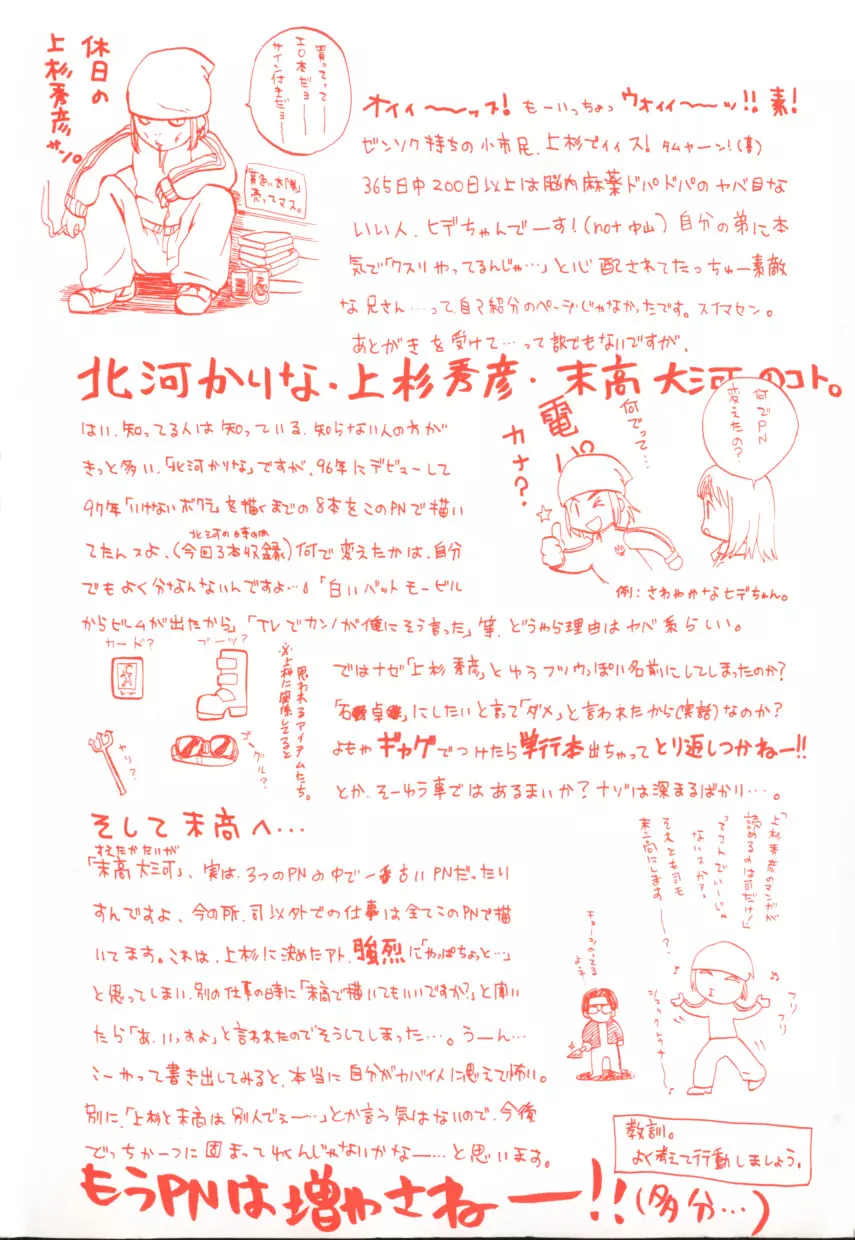 休日の
上杉秀彦
買ってって
エロ本だョ
サイン付きだョ
売ってマス。
オイィ〜〜ッス! もーいっちょっ ウオィィ〜〜ッ!! 素!
ゼンソク持ちの小市民、上杉でイイス! タムャーン!(喜)
365日中200日以上は脳内麻薬ドパドパのヤバ目な
いい人、ヒデちゃんでーす!(not中山) 自分の弟に本
気で「クスリやってるんじゃ…」と心配されてたっちゅー素敵
な兄さん……って、自己紹介のページじゃなかったです。スイマセン。
あとがきを受けて…って訳でもないですが、
北河かりな・上杉秀彦・末高大河のコト。
何でPN
変えたの?
何でって…
電パ
カナ?
例:さわやかなヒデちゃん。
はい、知ってる人は知っている、知らない人の方が
きっと多い、「北河かりな」ですが、96年にデビューして
97年「いけないボクら」を描くまでの8本をこのPNで描い
てたんスよ、(今回3本収録)何で変えたかは、自分
でもよく分なんないんですよ…。「白いバットモービル
からビームが出たから」「TVでカンノが俺にそう言った」等、どうやら理由はヤバ系らしい。
カード?
ブーツ?
ヤリ?
ゴーグル?
※上杉に関係してると
思われるアイテムたち。
ではナゼ「上杉秀彦」とゆうフツウっぽい名前にしてしまったのか?
にしたいと言って「ダメ」と言われたから(実話)なのか?
よもやギャグでつけたら単行本出ちゃってとり返しつかねー!!
とか、そーゆう事ではあるまいか? ナゾは深まるばかり…。
そして末高へ…
すえたかたいが
「末高大河」、実は、3つのPNの中で一番古いPNだったり
すんですよ、今の所、司以外での仕事は全てこのPNで描
いてます。これは、上杉に決めたアト、強烈に「やっぱちょっと…」
と思ってしまい、別の仕事の時に「末高で描いてもいいですか?」と聞い
たら「あ、いっすよ」と言われたのでそうしてしまった…。うーん…
こーやって書き出してみると、本当に自分がヤバイ人に思えて怖い。
別に、「上杉と末高は別人でぇ〜…」とか言う気はないので、今後
どっちか一つに固まってくんじゃないかなー…と思います。
「上杉秀彦のマンガが
読めるのは司だけ!」
ってコトでいーじゃ
ないスか?
それとも司も
末高にします——?
フリ
フリ
教訓。
よく考えて行動しましょう。
もうPNは増やさねー!!(多分…)